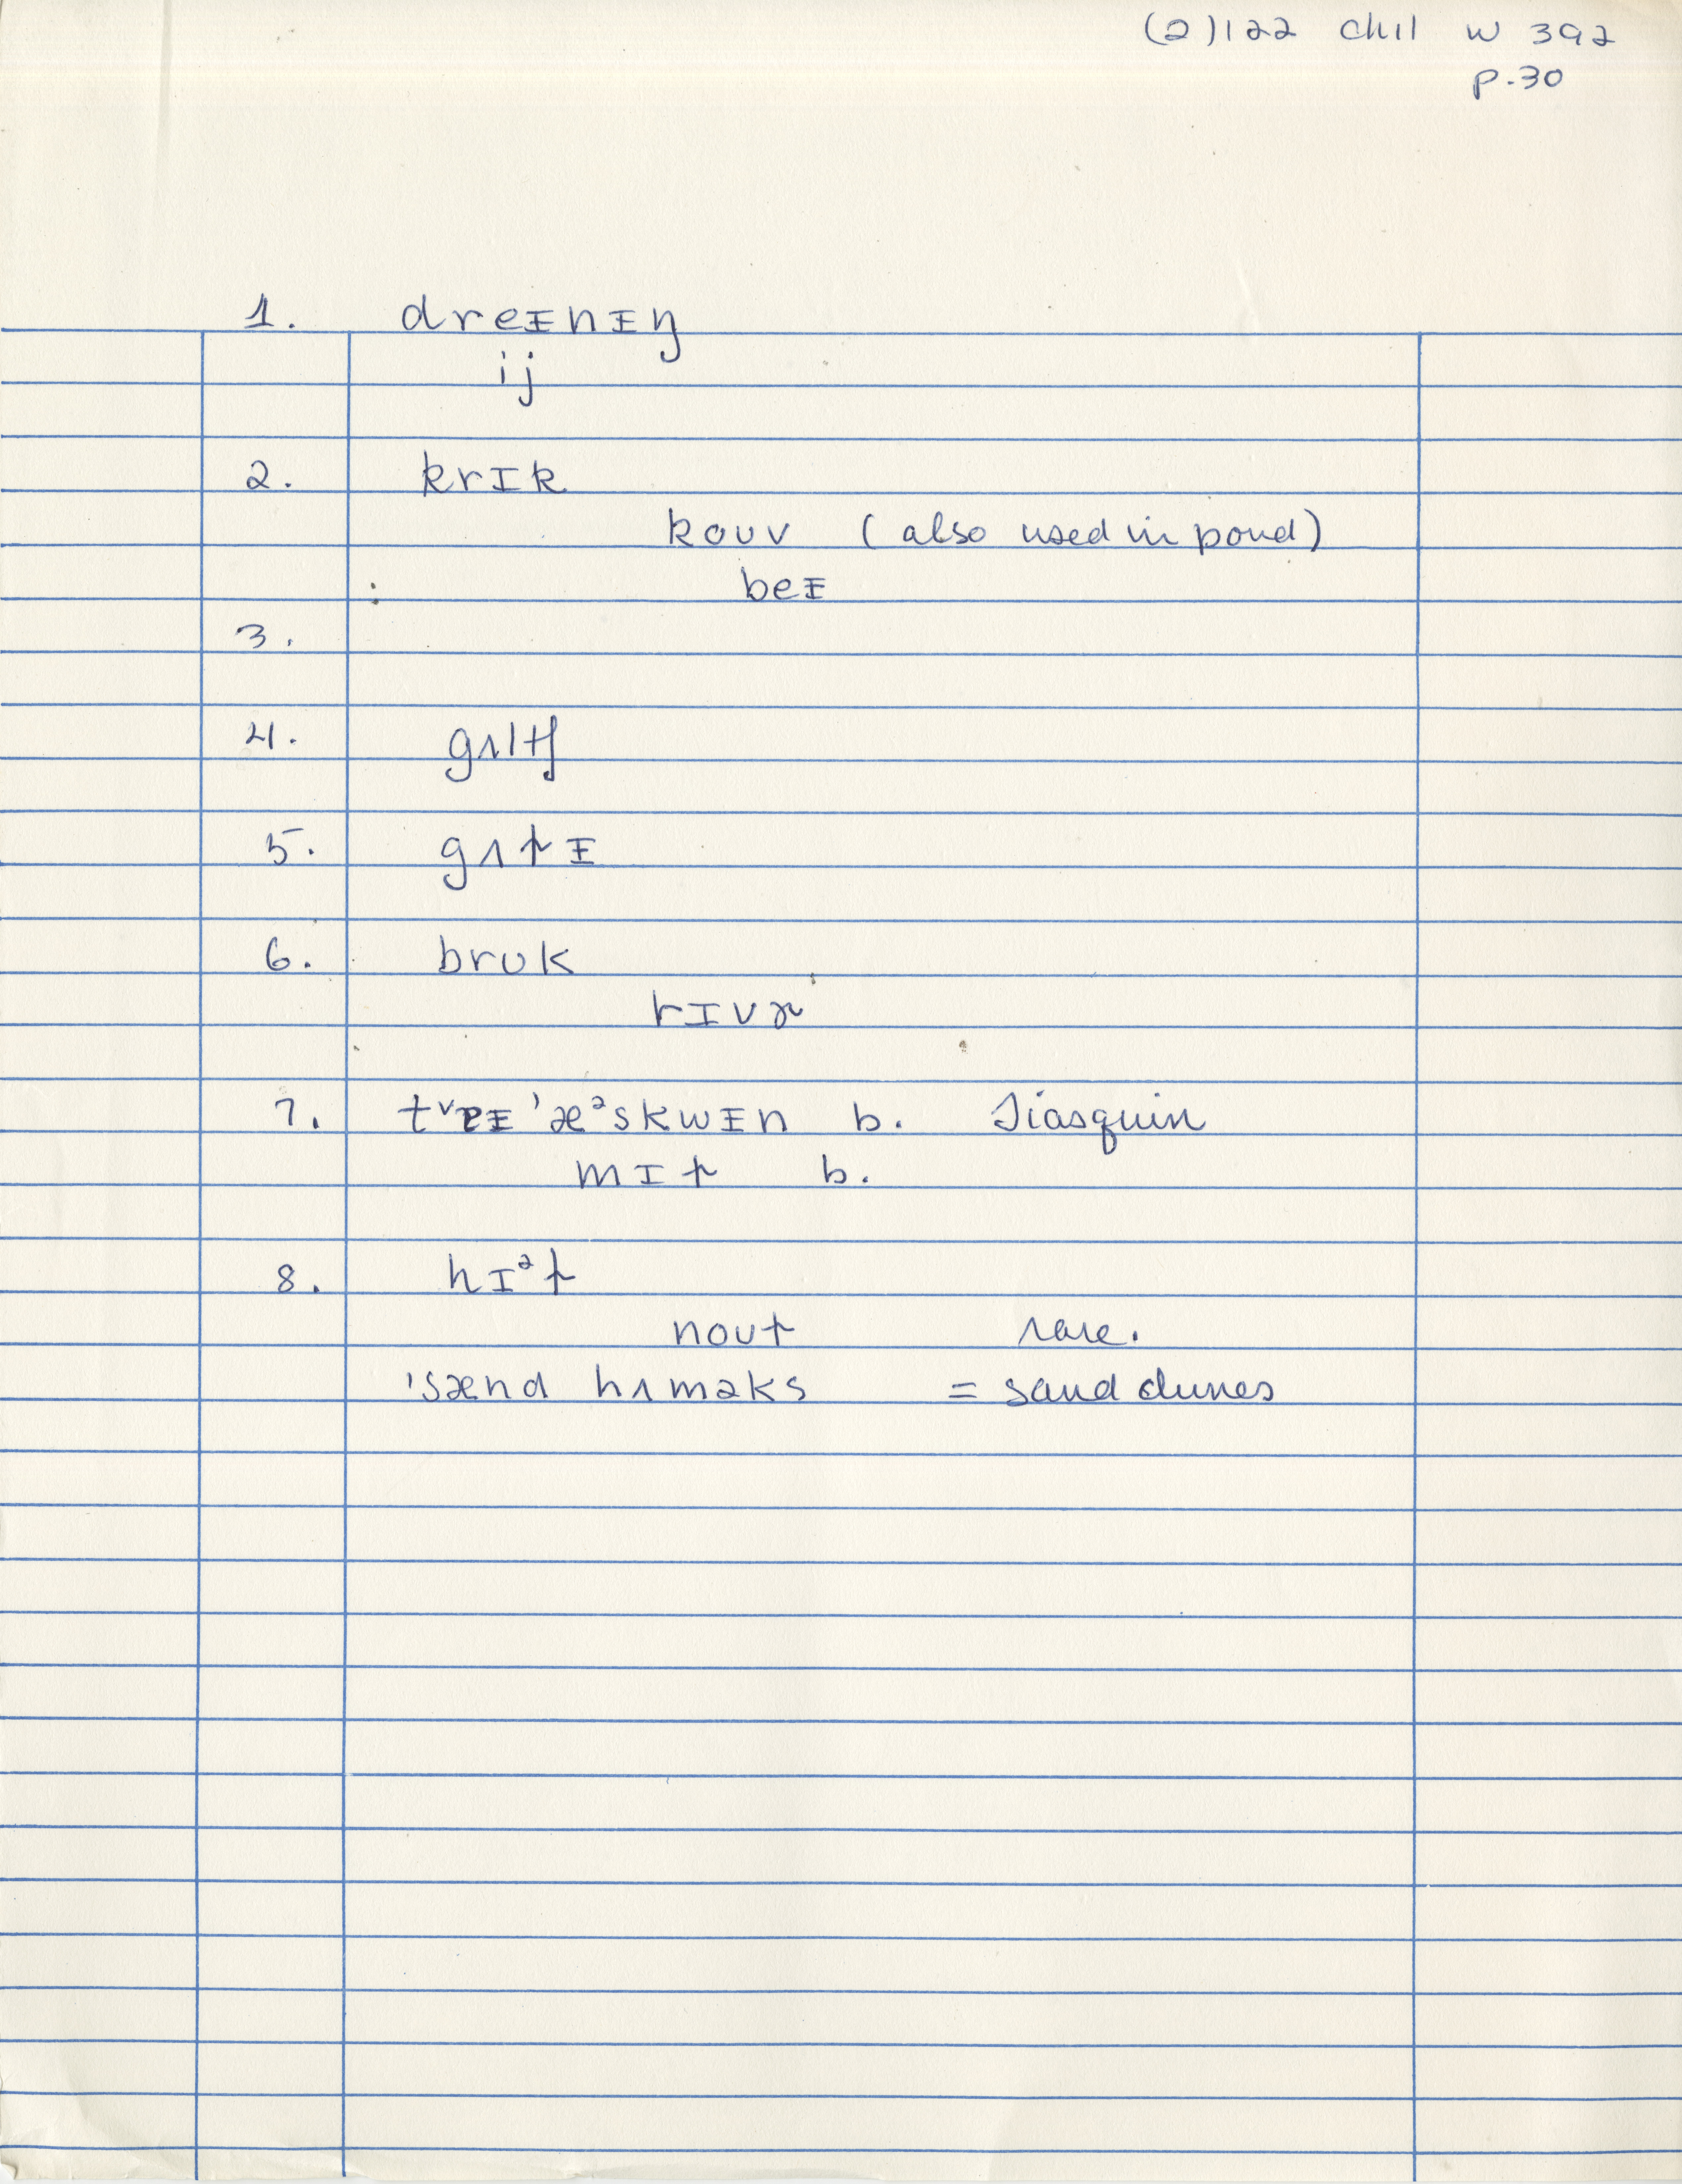 (2)122 chil w 392
p.30
1. dreᵻnᵻŋ
ij
2. krɪk
kouv (also used in pond)
beᵻ
3.
4. gʌltʃ
5. gʌtᵻ
6. brʊk
rɪvɚ
7. b. Tiasquin
mɪt b.
8. hɪᵊt
nout rare.
'sænd hʌməks = sand dunes